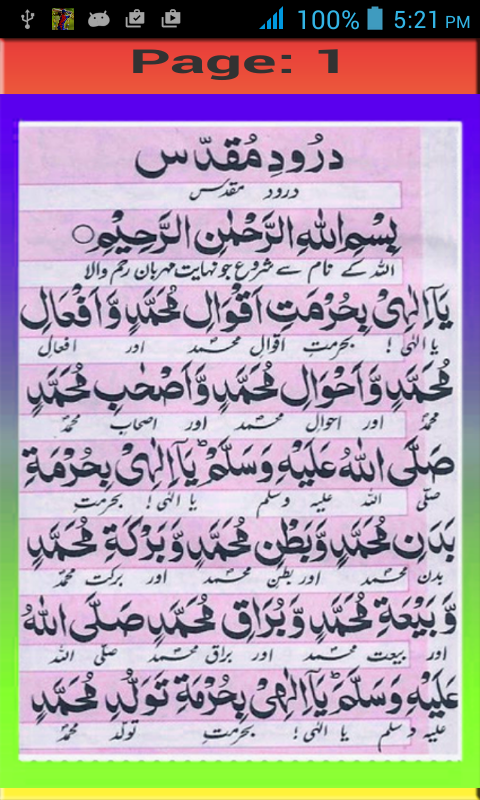 100% 5:21 PM
Page: 1
دُرُودِ مُقَدَّس
درود مقدس
بِسْمِ اللّٰهِ الرَّحْمٰنِ الرَّحِيْمِ○
اللہ کے نام سے شروع جو نہایت مہربان رحم والا
يَآ اِلٰهِىْ بِحُرْمَتِ اَقْوَالِ مُحَمَّدٍ وَّاَفْعَالِ
یا الٰہی! بحرمتِ اقوالِ محمد اور افعال
مُحَمَّدٍ وَّاَحْوَالِ مُحَمَّدٍ وَّاَصْحٰبِ مُحَمَّدٍ
محمدؐ اور احوالِ محمد اور اصحاب محمدؐ
صَلَّى اللّٰهُ عَلَيْهِ وَسَلَّمَ ؕ يَآ اِلٰهِىْ بِحُرْمَةِ
صلی اللہ علیہ وسلم یا الٰہی! بحرمتِ
بَدَنِ مُحَمَّدٍ وَّبَطْنِ مُحَمَّدٍ وَّبَرْكَةِ مُحَمَّدٍ
بدن محمد اور بطن محمد اور برکت محمدؐ
وَّبَيْعَةِ مُحَمَّدٍ وَّبُرَاقِ مُحَمَّدٍ صَلَّى اللّٰهُ
اور بیعت محمد اور براق محمد صلی اللہ
عَلَيْهِ وَسَلَّمَ ؕ يَآ اِلٰهِىْ بِحُرْمَةِ تَوَلُّدِ مُحَمَّدٍ
علیہ وسلم یا الٰہی! بحرمتِ تولّد محمدؐ